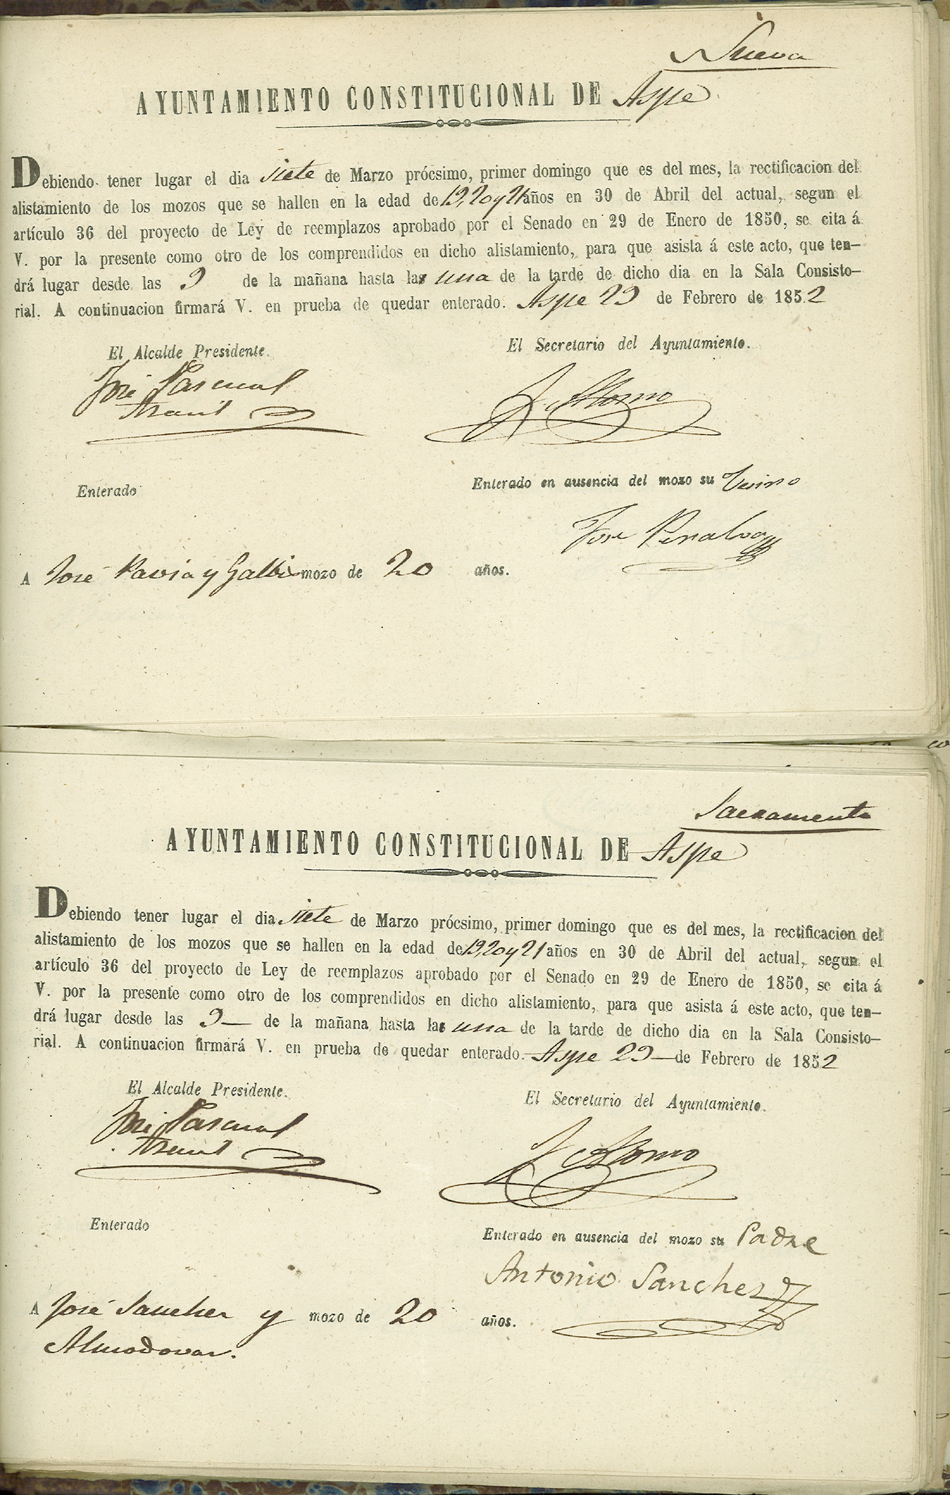 Nueva
AYUNTAMIENTO CONSTITUCIONAL DE Aspe
Debiendo tener lugar el dia siete de Marzo prócsimo, primer domingo que es del mes, la rectificacion del
alistamiento de los mozos que se hallen en la edad de 19, 20 y 21 años en 30 de Abril del actual, segun el
artículo 36 del proyecto de Ley de reemplazos aprobado por el Senado en 29 de Enero de 1850, se cita á
V. por la presente como otro de los comprendidos en dicho alistamiento, para que asista á este acto, que ten—
drá lugar desde las 9 de la mañana hasta las una de la tarde de dicho dia en la Sala Consisto—
rial. A continuacion firmará V. en prueba de quedar enterado. Aspe 29 de Febrero de 1852
El Alcalde Presidente. El Secretario del Ayuntamiento.
José Pascual
Enterado Enterado en ausencia del mozo su
José Penalva
A José Pavia y mozo de 20 años.
Sacramento
AYUNTAMIENTO CONSTITUCIONAL DE Aspe
Debiendo tener lugar el dia siete de Marzo prócsimo, primer domingo que es del mes, la rectificacion del
alistamiento de los mozos que se hallen en la edad de 19, 20 y 21 años en 30 de Abril del actual, segun el
artículo 36 del proyecto de Ley de reemplazos aprobado por el Senado en 29 de Enero de 1850, se cita á
V. por la presente como otro de los comprendidos en dicho alistamiento, para que asista á este acto, que ten—
drá lugar desde las 9 — de la mañana hasta las una de la tarde de dicho dia en la Sala Consisto—
rial. A continuacion firmará V. en prueba de quedar enterado. Aspe 29 — de Febrero de 1852
El Alcalde Presidente. El Secretario del Ayuntamiento.
José Pascual
Enterado Enterado en ausencia del mozo su Padre
Antonio Sanchez
A José Sanchez y mozo de 20 años.
Almodovar.